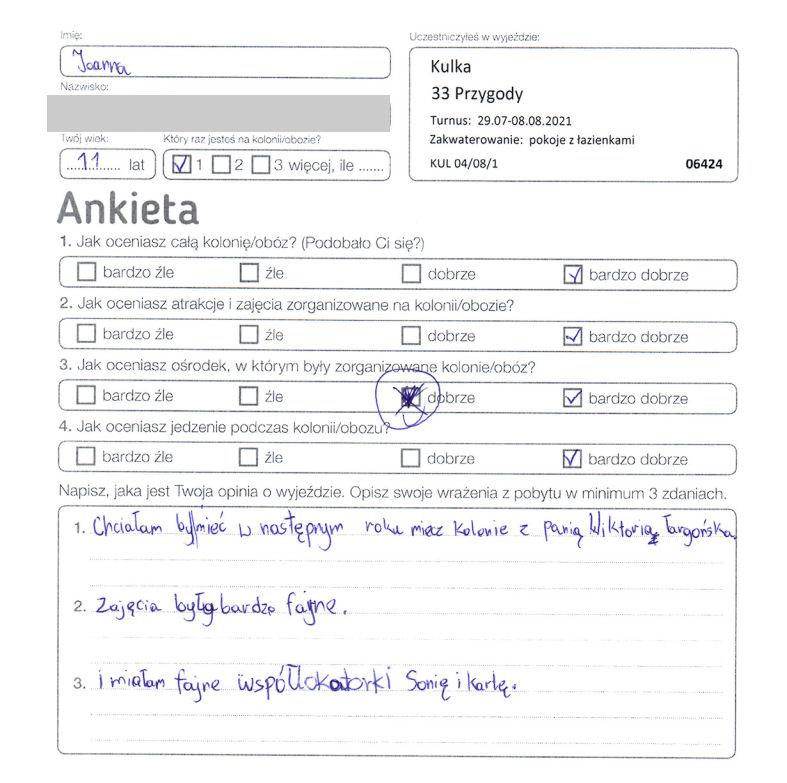 Imię:
Joanna
Nazwisko:
Twój wiek:
11 lat
Który raz jesteś na kolonii/obozie?
1 2 3 więcej, ile .......
Uczestniczyłeś w wyjeździe:
Kulka
33 Przygody
Turnus: 29.07-08.08.2021
Zakwaterowanie: pokoje z łazienkami
KUL 04/08/1 06424
Ankieta
1. Jak oceniasz całą kolonię/obóz? (Podobało Ci się?)
bardzo źle źle dobrze bardzo dobrze
2. Jak oceniasz atrakcje i zajęcia zorganizowane na kolonii/obozie?
bardzo źle źle dobrze bardzo dobrze
3. Jak oceniasz ośrodek, w którym były zorganizowane kolonie/obóz?
bardzo źle źle dobrze bardzo dobrze
4. Jak oceniasz jedzenie podczas kolonii/obozu?
bardzo źle źle dobrze bardzo dobrze
Napisz, jaka jest Twoja opinia o wyjeździe. Opisz swoje wrażenia z pobytu w minimum 3 zdaniach.
1. Chciałam by mieć w następnym roku miec kolonie z panią Wiktorią Targońską
2. Zajęcia były bardzo fajne.
3. i miałam fajne współlokatorki Sonię i Karlę.